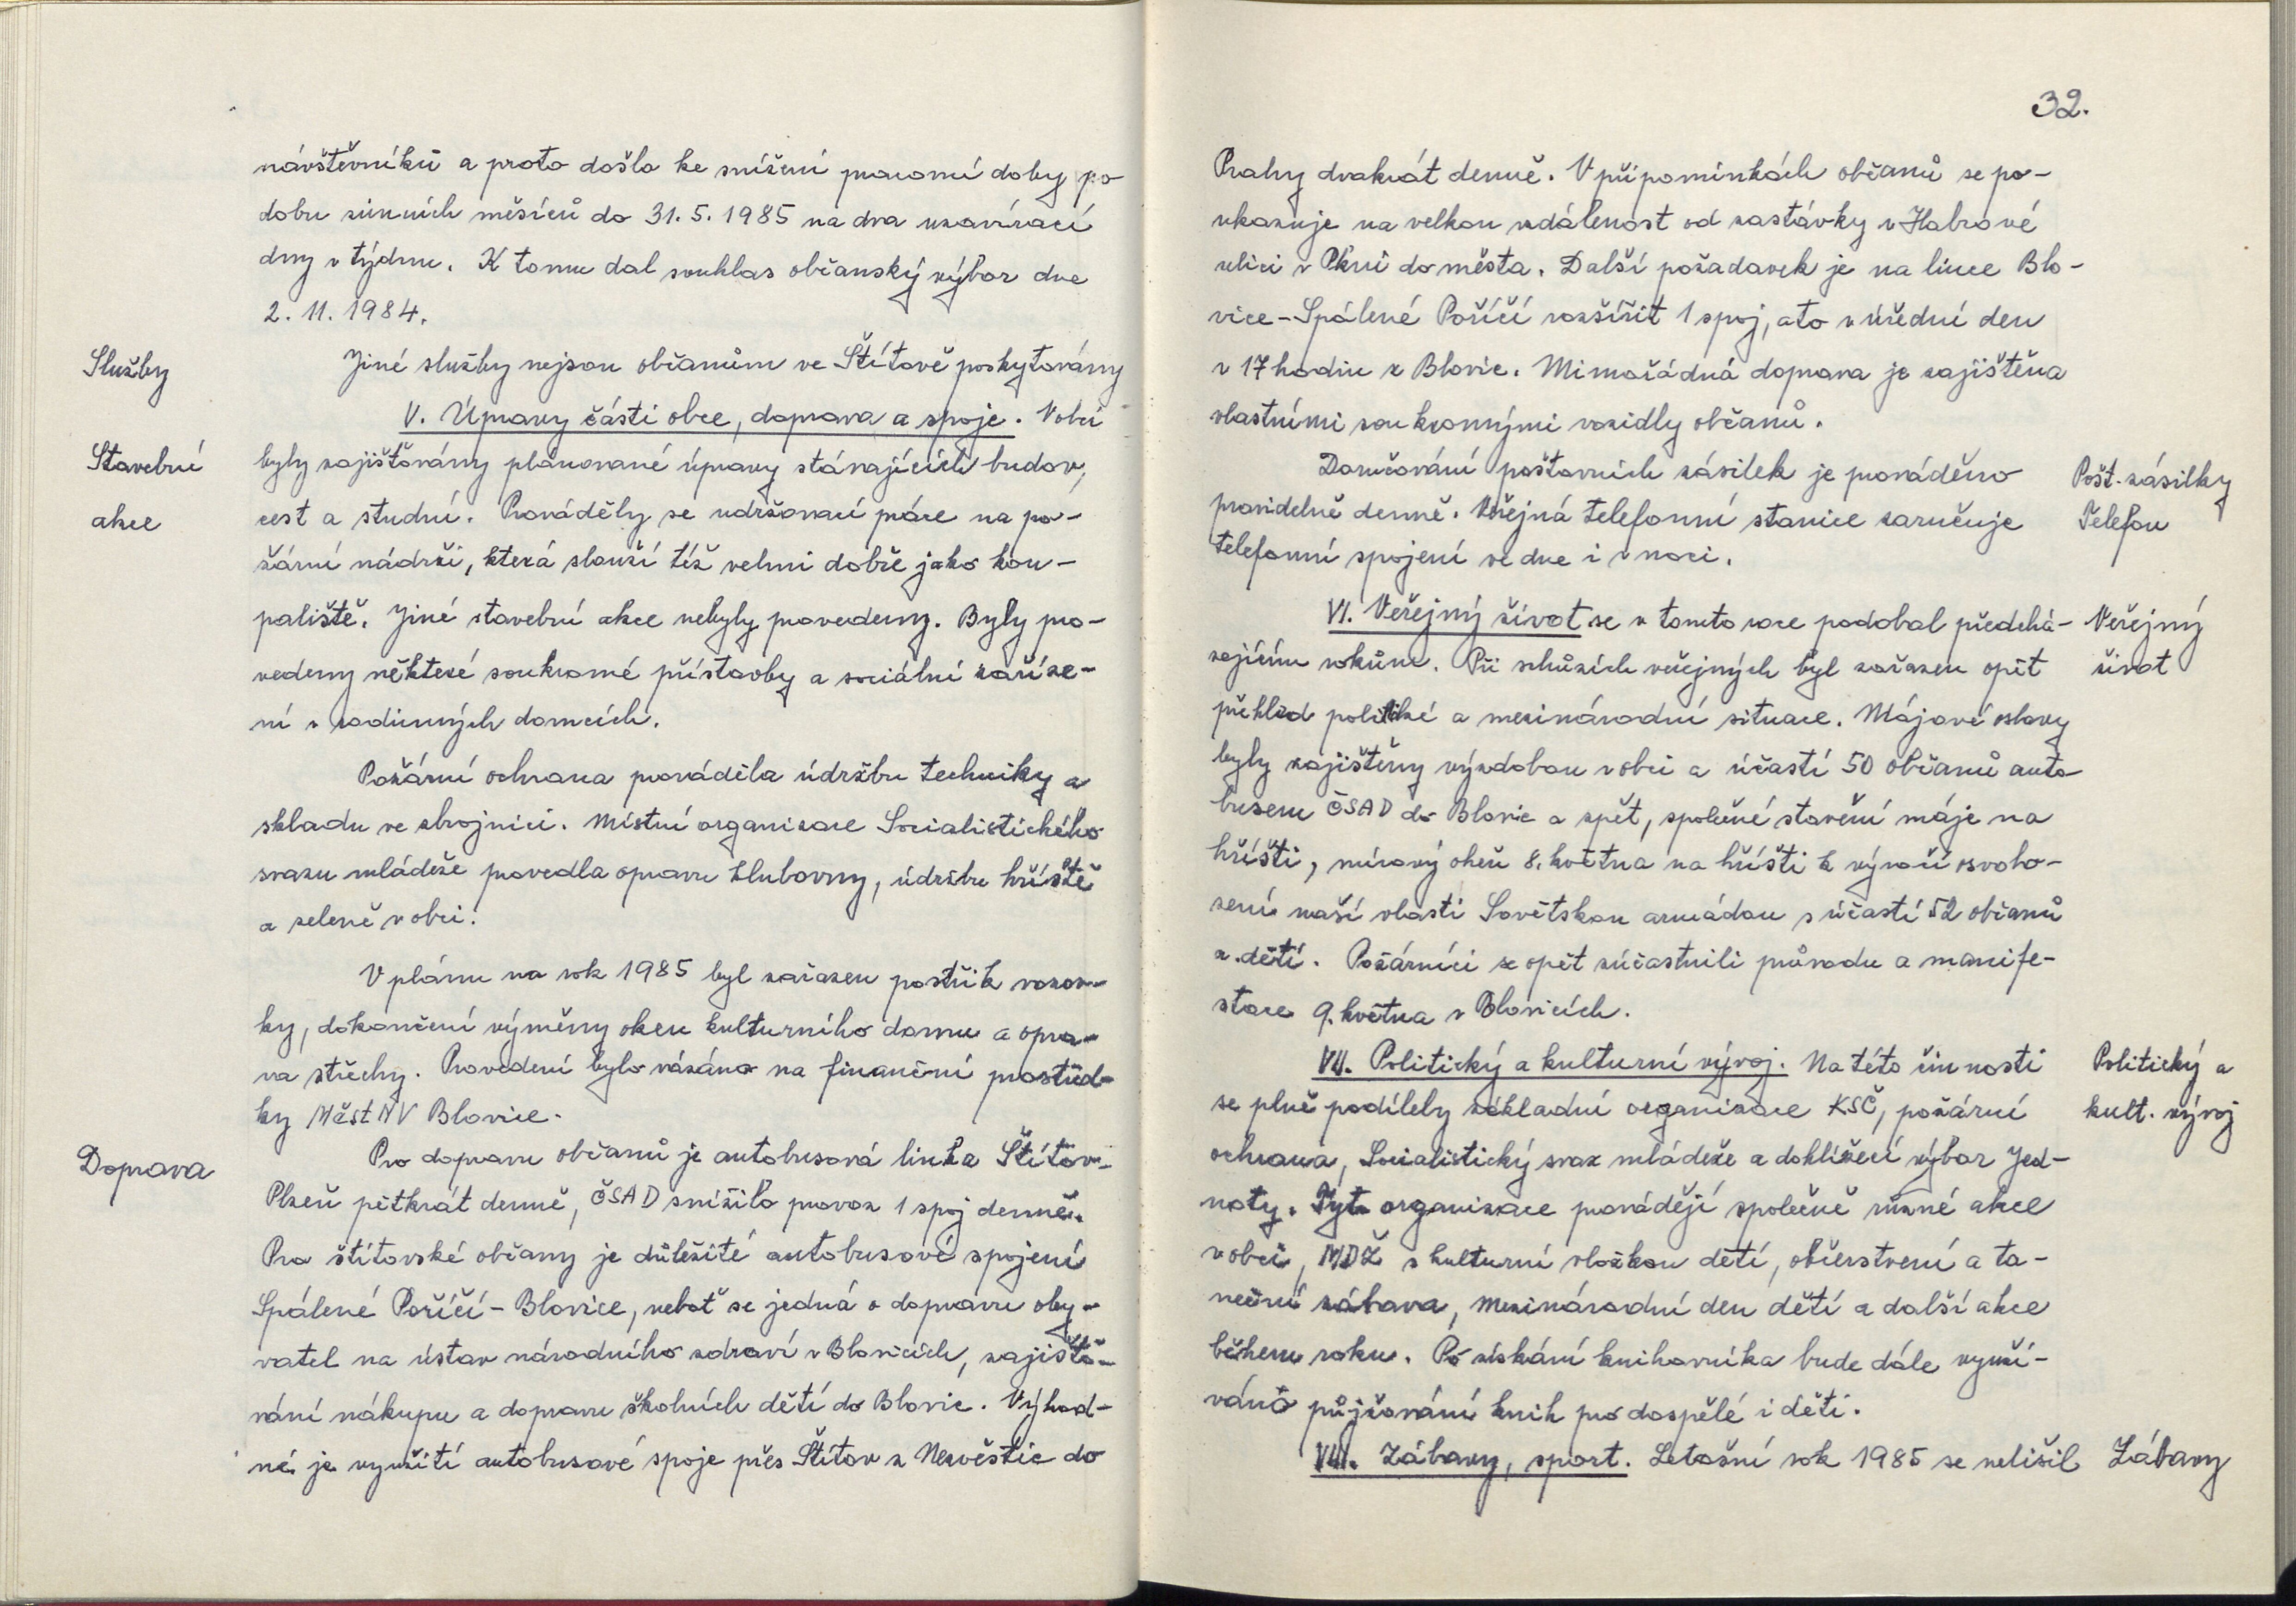 návštěvníků a proto došlo ke snížení pracovní doby po
dobu zimních měsíců do 31.5.1985 na dva uzavírací
dny v týdnu. K tomu dal souhlas občanský výbor dne
2.11.1984.
Služby
Jiné služby nejsou občanům ve Štítově poskytovány
V. Úpravy části obce, doprava a spoje. V obci
Stavební
byly zajišťovány plánované úpravy stávajících budov,
akce
cest a studní. Prováděly se udržovací práce na po-
žární nádrži, která slouží též velmi dobře jako kou-
paliště. Jiné stavební akce nebyly provedeny. Byly pro-
vedeny některé soukromé přístavby a sociální zaříze-
ní v rodinných domcích.
Požární ochrana prováděla údržbu techniky a
skladu ve zbrojnici. Místní organizace Socialistického
svazu mládeže provedla opravu klubovny, údržbu hřiště
a zeleně v obci.
V plánu na rok 1985 byl zařazen postřik vozov-
ky, dokončení výměny oken kulturního domu a opra-
va střechy. Provedení bylo vázáno na finanční prostřed-
ky MěstNV Blovice.
Doprava
Pro dopravu občanů je autobusová linka Štítov-
Plzeň pětkrát denně, ČSAD snížilo provoz 1 spoj denně.
Pro štítovské občany je důležité autobusové spojení
Spálené Poříčí-Blovice, neboť se jedná o dopravu oby-
vatel na ústav národního zdraví v Blovicích, zajišťo-
vání nákupu a dopravu školních dětí do Blovic. Výhod-
né je využití autobusové spoje přes Štítov z Nezvěstic do
32.
Prahy dvakrát denně. V připomínkách občanů se po-
ukazuje na velkou vzdálenost od zastávky v Habrové
ulici v Plzni do města. Další požadavek je na lince Blo-
vice-Spálené Poříčí rozšířit 1 spoj, a to v úřední den
v 17 hodin z Blovic. Mimořádná doprava je zajištěna
vlastními soukromými vozidly občanů.
Doručování poštovních zásilek je prováděno
Pošt. zásilky
pravidelně denně. Veřejná telefonní stanice zaručuje
Telefon
telefonní spojení ve dne i v noci.
VI. Veřejný život se v tomto roce podobal předchá-
Veřejný
zejícím rokům. Při schůzích veřejných byl zařazen opět
život
přehled politické a mezinárodní situace. Májové oslavy
byly zajištěny výzdobou v obci a účastí 50 občanů auto-
busem ČSAD do Blovic a zpět, společné stavění máje na
hřišti, mírový oheň 8. května na hřišti k výročí osvobo-
zení naší vlasti Sovětskou armádou s účastí 52 občanů
z. dětí. Požárníci se opět zúčastnili průvodu a manife-
stace 9. května v Blovicích.
VII. Politický a kulturní vývoj. Na této činnosti
Politický a
se plně podílely základní organizace KSČ, požární
kult. vývoj
ochrana, Socialistický svaz mládeže a dohlížecí výbor Jed-
noty. Tyto organizace provádějí společně různé akce
v obci, MDŽ s kulturní vložkou dětí, občerstvení a ta-
neční zábava, Mezinárodní den dětí a další akce
během roku. Po získání knihovníka bude dále využí-
váno půjčování knih pro dospělé i děti.
VIII. Zábavy, sport. Letošní rok 1985 se nelišil
Zábavy